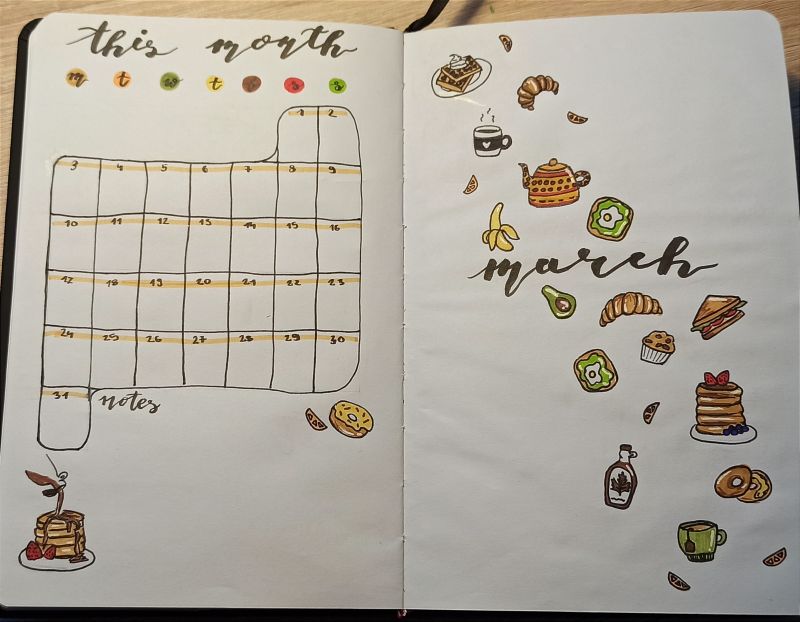 this month
m t w t f s s
1 2
3 4 5 6 7 8 9
10 11 12 13 14 15 16
17 18 19 20 21 22 23
24 25 26 27 28 29 30
31 notes
march